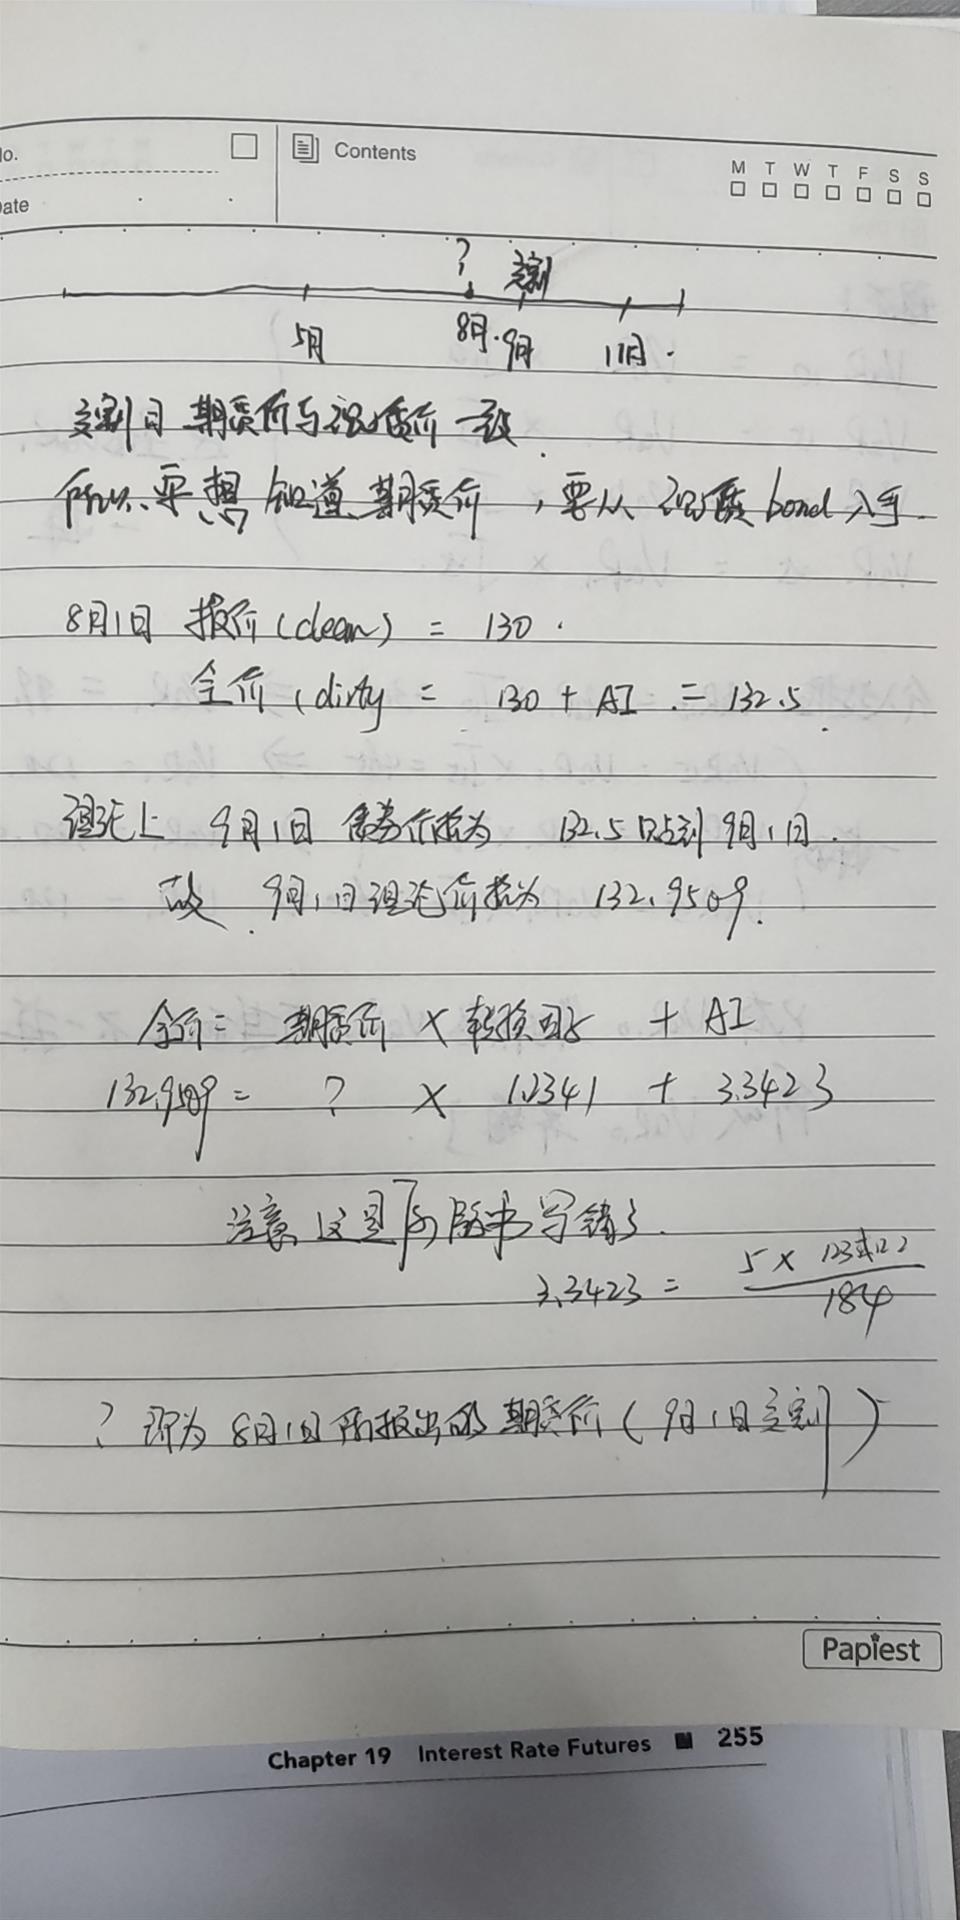 No.
Contents
M T W T F S S
Date
? 交割
5月 8月. 9月 11月.
交割日 期货价与现货价一致.
所以要想知道期货价, 要从现货 bond 入手.
8月1日 报价(clean) = 130.
全价(dirty = 130 + AI = 132.5.
理论上 9月1日 债券价格为 132.5 到9月1日.
故. 9月1日理论价格为 132.9509.
全价= 期货价 × 转换因子 + AI
132.9509 = ? × 1.2341 + 3.3423
注意 这里 书 写错了.
3.3423 = 5 × 123 / 184
? 即为 8月1日所报出的期货价 (9月1日交割)
Papiest
Chapter 19 Interest Rate Futures ■ 255